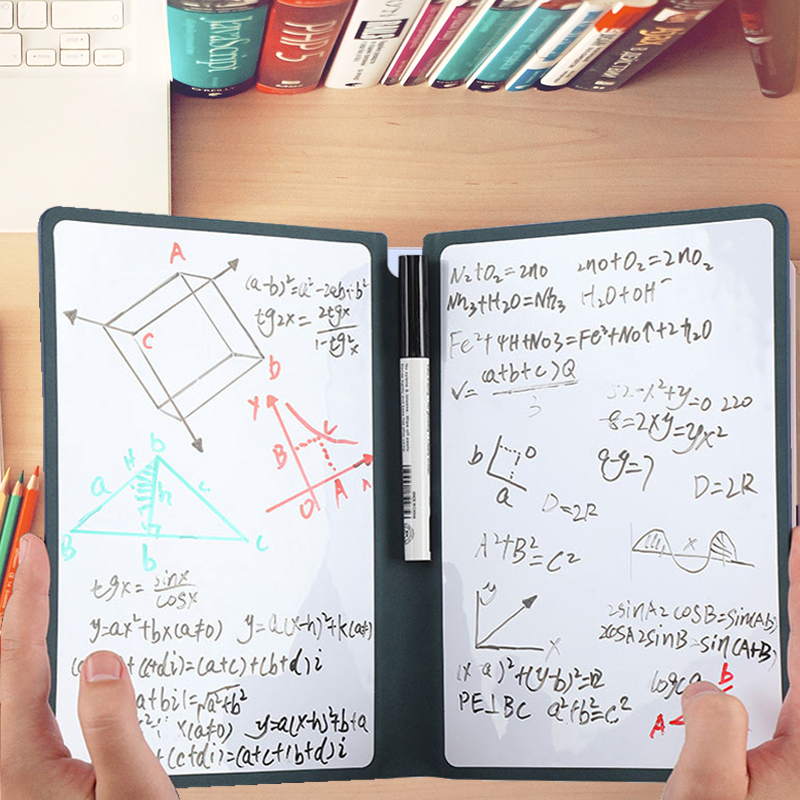 JavaScript
PHP 5
A
C
b
(a-b)²=a²-2ab+b²
tg2x=2tgx/1-tg²x
Y
B
C
O
A
b
H
a
h
c
B
b
C
tgx=sinx/cosx
y=ax²+bx(a≠0) y=a(x-h)²+k(a≠
+(c+di)=(a+c)+(b+d)i
a+bi|=√a²+b²
x(a≠0) y=a(x-h)²+b+a
+(c+di)=(a+c+(b+d)i
N₂+O₂=2no 2no+O₂=2nO₂
Nh₃+H₂O=Nh₃ H₂O+OH⁻
Fe²+4H+No3=Fe²+No↑+2h₂O
V=(a+b+c)Q/3
52-x²+y=0 220
-8=2xy=yx²
b
O
a
D=2R
D=2R
A²+B²=C²
x
y
x
2sinA2cosB=sin(Ab)
2cosA2sinB=sin(A+B)
(x-a)²+(y-b)²=
PE⊥BC a²+b²=c²
logca
b
A